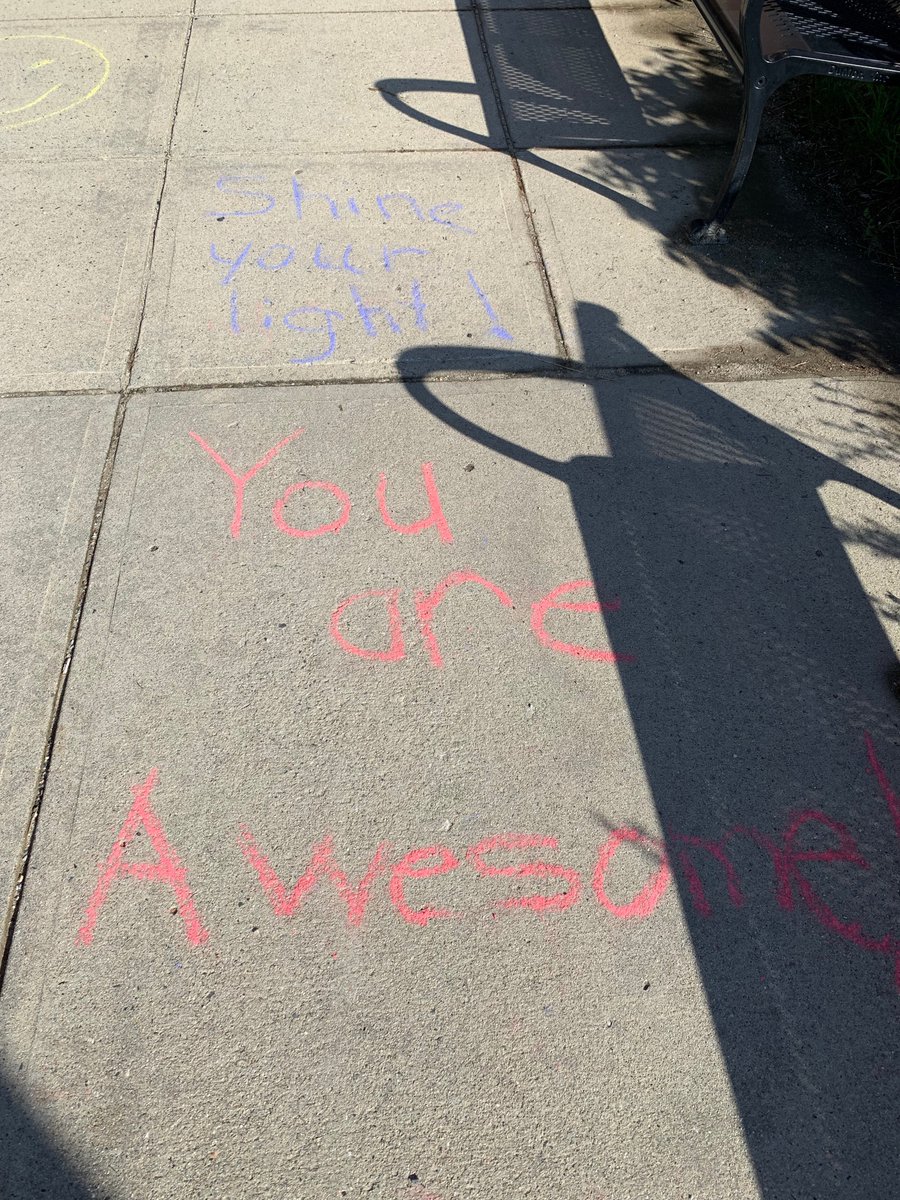 Shine
your
light!
You
are
Awesome!